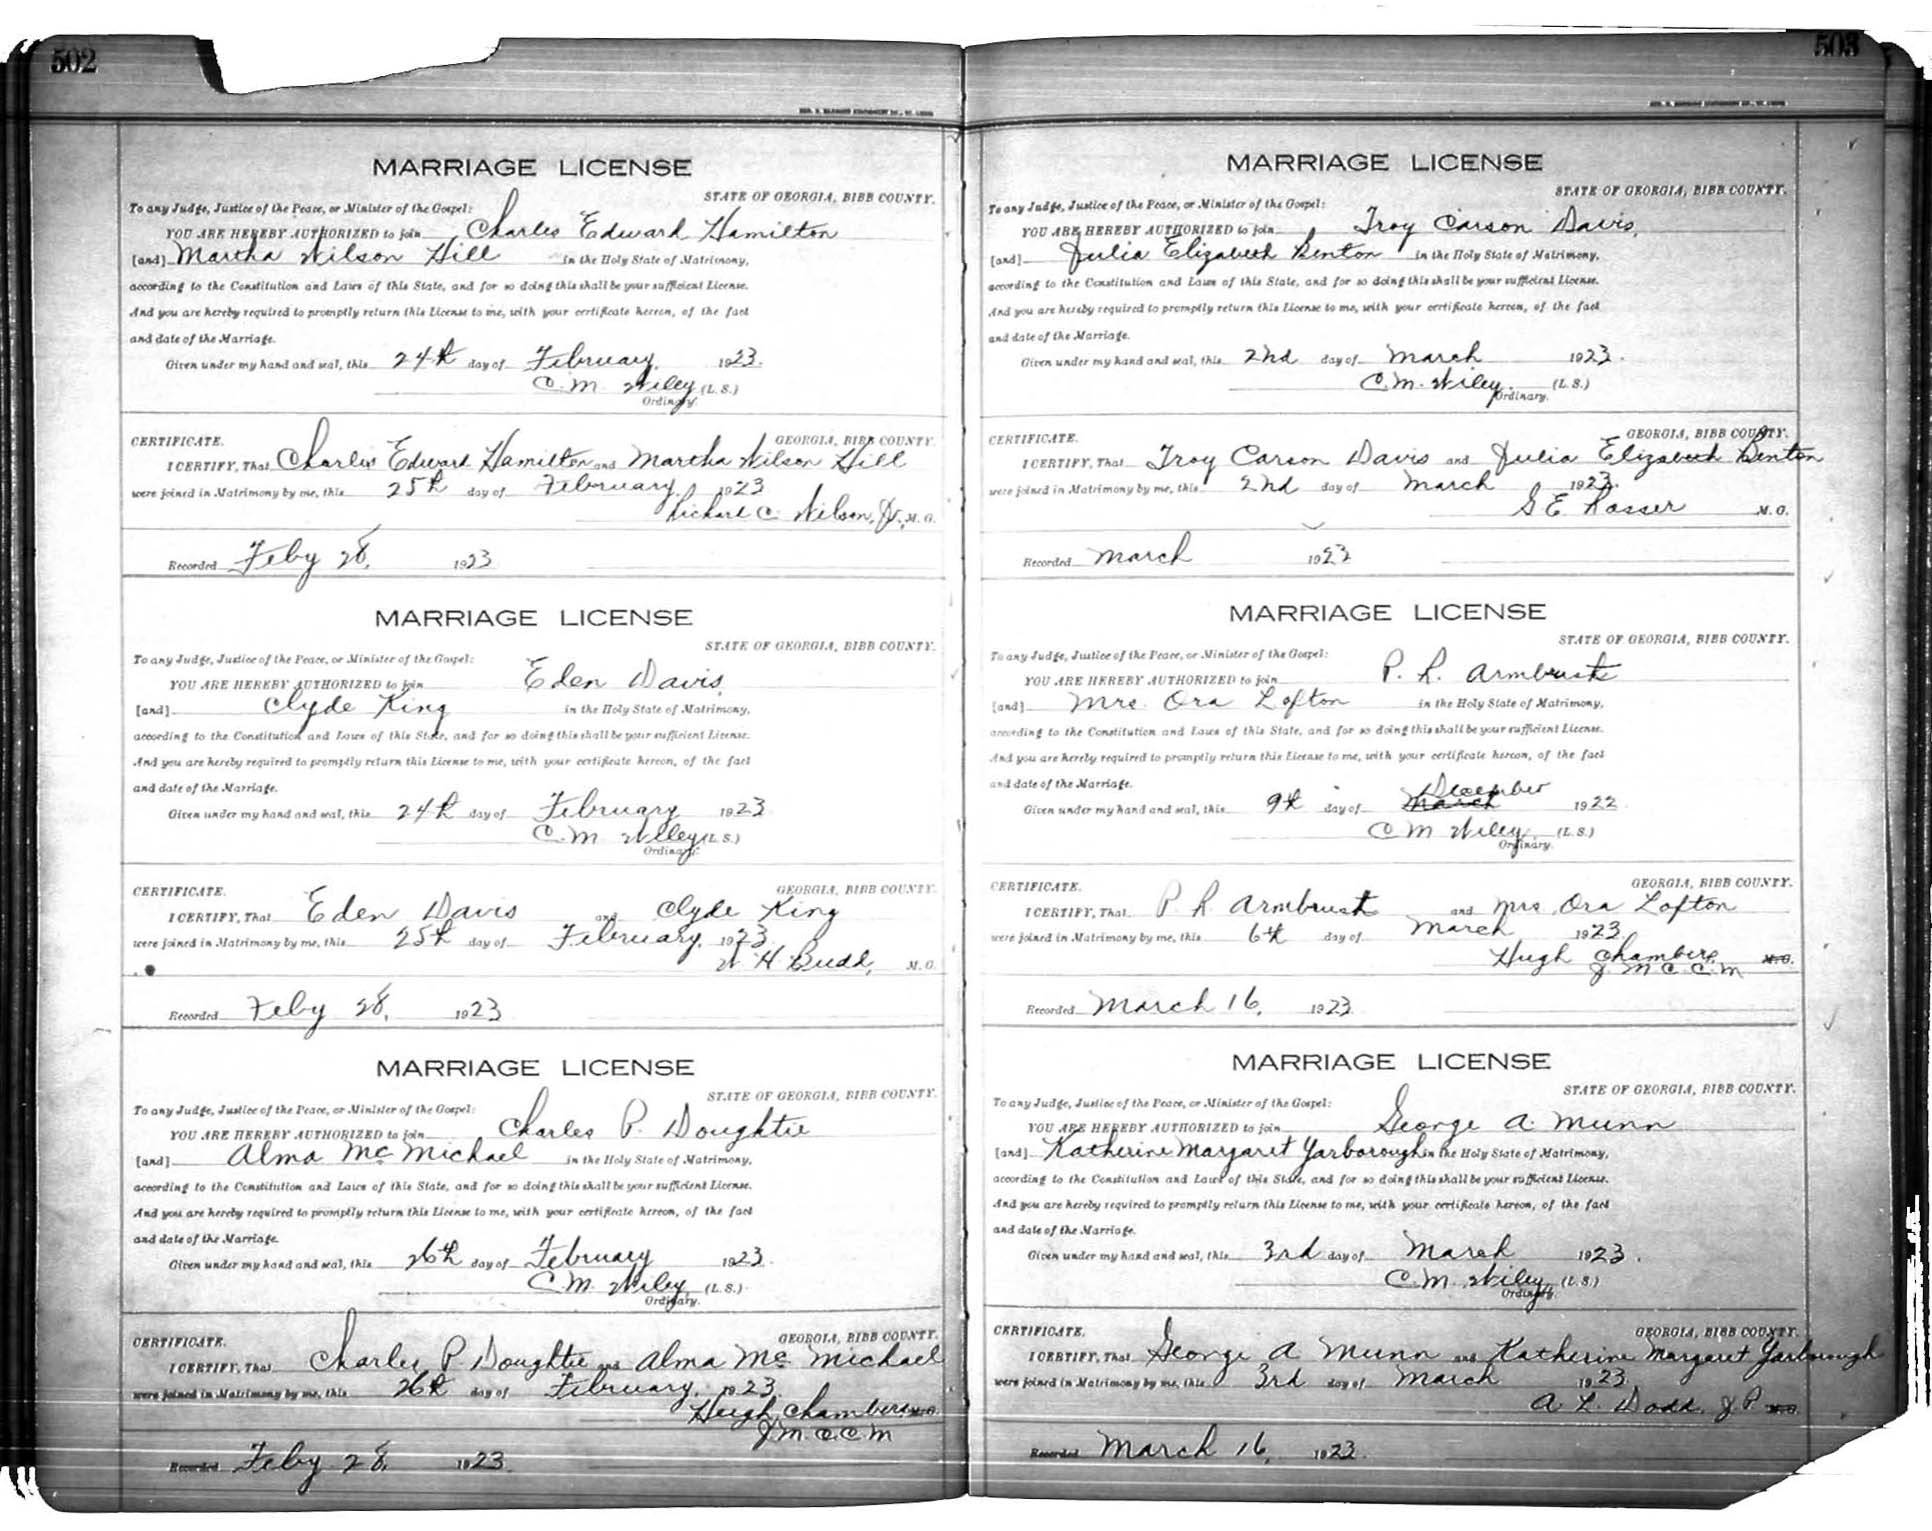 502
MARRIAGE LICENSE
STATE OF GEORGIA, BIBB COUNTY.
To any Judge, Justice of the Peace, or Minister of the Gospel:
YOU ARE HEREBY AUTHORIZED to join Charles Edward Hamilton
[and] Martha Wilson Hill in the Holy State of Matrimony,
according to the Constitution and Laws of this State, and for so doing this shall be your sufficient License.
And you are hereby required to promptly return this License to me, with your certificate hereon, of the fact
and date of the Marriage.
Given under my hand and seal, this 24th day of February 1923.
C. M. Wiley (L. S.)
Ordinary.
CERTIFICATE. GEORGIA, BIBB COUNTY.
I CERTIFY, That Charles Edward Hamilton and Martha Wilson Hill
were joined in Matrimony by me, this 25th day of February 1923
Richard C. Wilson, Jr, M. G.
Recorded Feby 28, 1923
MARRIAGE LICENSE
STATE OF GEORGIA, BIBB COUNTY.
To any Judge, Justice of the Peace, or Minister of the Gospel:
YOU ARE HEREBY AUTHORIZED to join Eden Davis
[and] Clyde King in the Holy State of Matrimony,
according to the Constitution and Laws of this State, and for so doing this shall be your sufficient License.
And you are hereby required to promptly return this License to me, with your certificate hereon, of the fact
and date of the Marriage.
Given under my hand and seal, this 24th day of February 1923
C. M. Wiley (L. S.)
Ordinary.
CERTIFICATE. GEORGIA, BIBB COUNTY.
I CERTIFY, That Eden Davis and Clyde King
were joined in Matrimony by me, this 25th day of February, 1923
W H Budd, M. G.
Recorded Feby 28, 1923
MARRIAGE LICENSE
STATE OF GEORGIA, BIBB COUNTY.
To any Judge, Justice of the Peace, or Minister of the Gospel:
YOU ARE HEREBY AUTHORIZED to join Charles P. Doughtie
[and] Alma McMichael in the Holy State of Matrimony,
according to the Constitution and Laws of this State, and for so doing this shall be your sufficient License.
And you are hereby required to promptly return this License to me, with your certificate hereon, of the fact
and date of the Marriage.
Given under my hand and seal, this 26th day of February 1923.
C. M. Wiley (L. S.)
Ordinary.
CERTIFICATE. GEORGIA, BIBB COUNTY.
I CERTIFY, That Charles P. Doughtie and Alma McMichael
were joined in Matrimony by me, this 26th day of February, 1923.
Hugh Chambers M. G.
J. M. C. C. M
Recorded Feby 28, 1923
503
MARRIAGE LICENSE
STATE OF GEORGIA, BIBB COUNTY.
To any Judge, Justice of the Peace, or Minister of the Gospel:
YOU ARE HEREBY AUTHORIZED to join Troy Carson Davis,
[and] Julia Elizabeth Benton in the Holy State of Matrimony,
according to the Constitution and Laws of this State, and for so doing this shall be your sufficient License.
And you are hereby required to promptly return this License to me, with your certificate hereon, of the fact
and date of the Marriage.
Given under my hand and seal, this 2nd day of March 1923.
C. M. Wiley. (L. S.)
Ordinary.
CERTIFICATE. GEORGIA, BIBB COUNTY.
I CERTIFY, That Troy Carson Davis and Julia Elizabeth Benton
were joined in Matrimony by me, this 2nd day of March 1923.
S E Rosser M. G.
Recorded March 1923
MARRIAGE LICENSE
STATE OF GEORGIA, BIBB COUNTY.
To any Judge, Justice of the Peace, or Minister of the Gospel:
YOU ARE HEREBY AUTHORIZED to join P. R. Armbrust
[and] Mrs. Ora Lofton in the Holy State of Matrimony,
according to the Constitution and Laws of this State, and for so doing this shall be your sufficient License.
And you are hereby required to promptly return this License to me, with your certificate hereon, of the fact
and date of the Marriage.
December
Given under my hand and seal, this 9th day of March 1922
C M Wiley. (L. S.)
Ordinary.
CERTIFICATE. GEORGIA, BIBB COUNTY.
I CERTIFY, That P R Armbrust and Mrs Ora Lofton
were joined in Matrimony by me, this 6th day of March 1923
Hugh Chambers M. G.
J. M. C. C. M
Recorded March 16, 1923
MARRIAGE LICENSE
STATE OF GEORGIA, BIBB COUNTY.
To any Judge, Justice of the Peace, or Minister of the Gospel:
YOU ARE HEREBY AUTHORIZED to join George A. Munn
[and] Katherine Margaret Yarborough in the Holy State of Matrimony,
according to the Constitution and Laws of this State, and for so doing this shall be your sufficient License.
And you are hereby required to promptly return this License to me, with your certificate hereon, of the fact
and date of the Marriage.
Given under my hand and seal, this 3rd day of March 1923.
C. M. Wiley (L. S.)
Ordinary.
CERTIFICATE. GEORGIA, BIBB COUNTY.
I CERTIFY, That George A Munn and Katherine Margaret Yarborough
were joined in Matrimony by me, this 3rd day of March 1923
A. L. Dodd, J P M. G.
Recorded March 16, 1923.